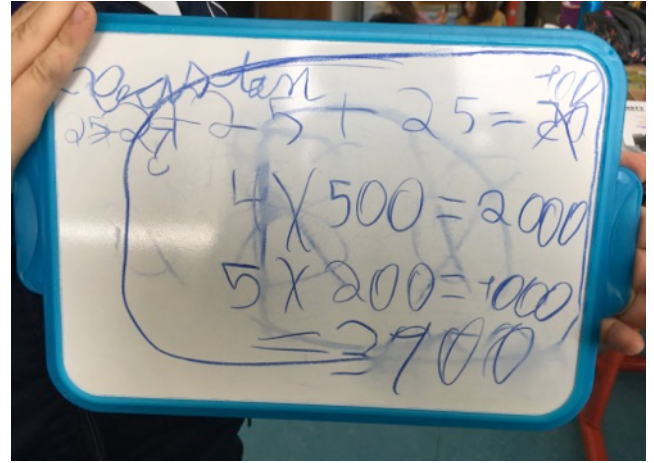 25+25+25+25=100
4X500=2000
5X200=1000
=3900